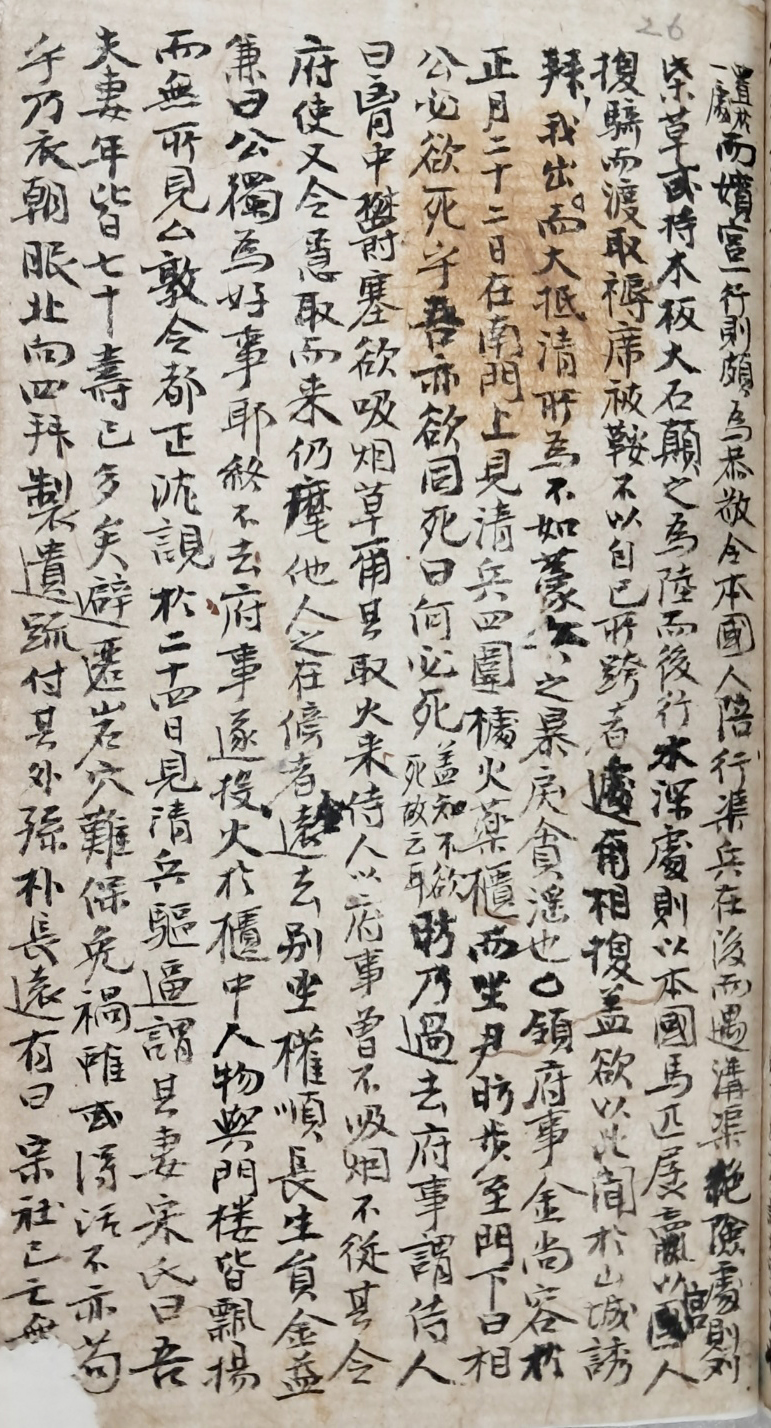 26
置獻而嬪宮一行則頗爲恭敬令本國人陪行渠兵在後而遇溝渠絶險處則列
柴草或持木板大石顚之爲陸而後行水深處則以本國馬匹屢羸以宮人
換騎而渡取褥席被鞍不以自己所跨者遽爾相換盖欲以此聞於山城誘
我出而大抵淸所爲不如蒙兵之暴戾貪淫也○領府事金尙容於
正月二十二日在南門上見淸兵四圍據火藥櫃而坐尹昉步至門下曰相
公必欲死乎吾亦欲同死曰何必死盖知不欲死故云耳昉乃過去府事謂侍人
曰胷中鬱塞欲吸烟草爾其取火来侍人以府事曾不吸烟不從其令
府使又令急取而来仍麾他人之在傍者遠去別坐權順長生員金益
兼曰公獨爲好事耶終不去府事遂投火於櫃中人物與門樓皆飄揚
而無所見厶敦令都正沈誢於二十四日見淸兵驅逼謂其妻宋氏曰吾
夫妻年皆七十壽已多矣避遷岩穴難保免禍雖或得活不亦苟
乎乃衣朝服北向四拜製遺疏付其外孫朴長遠有曰宗社已亡無